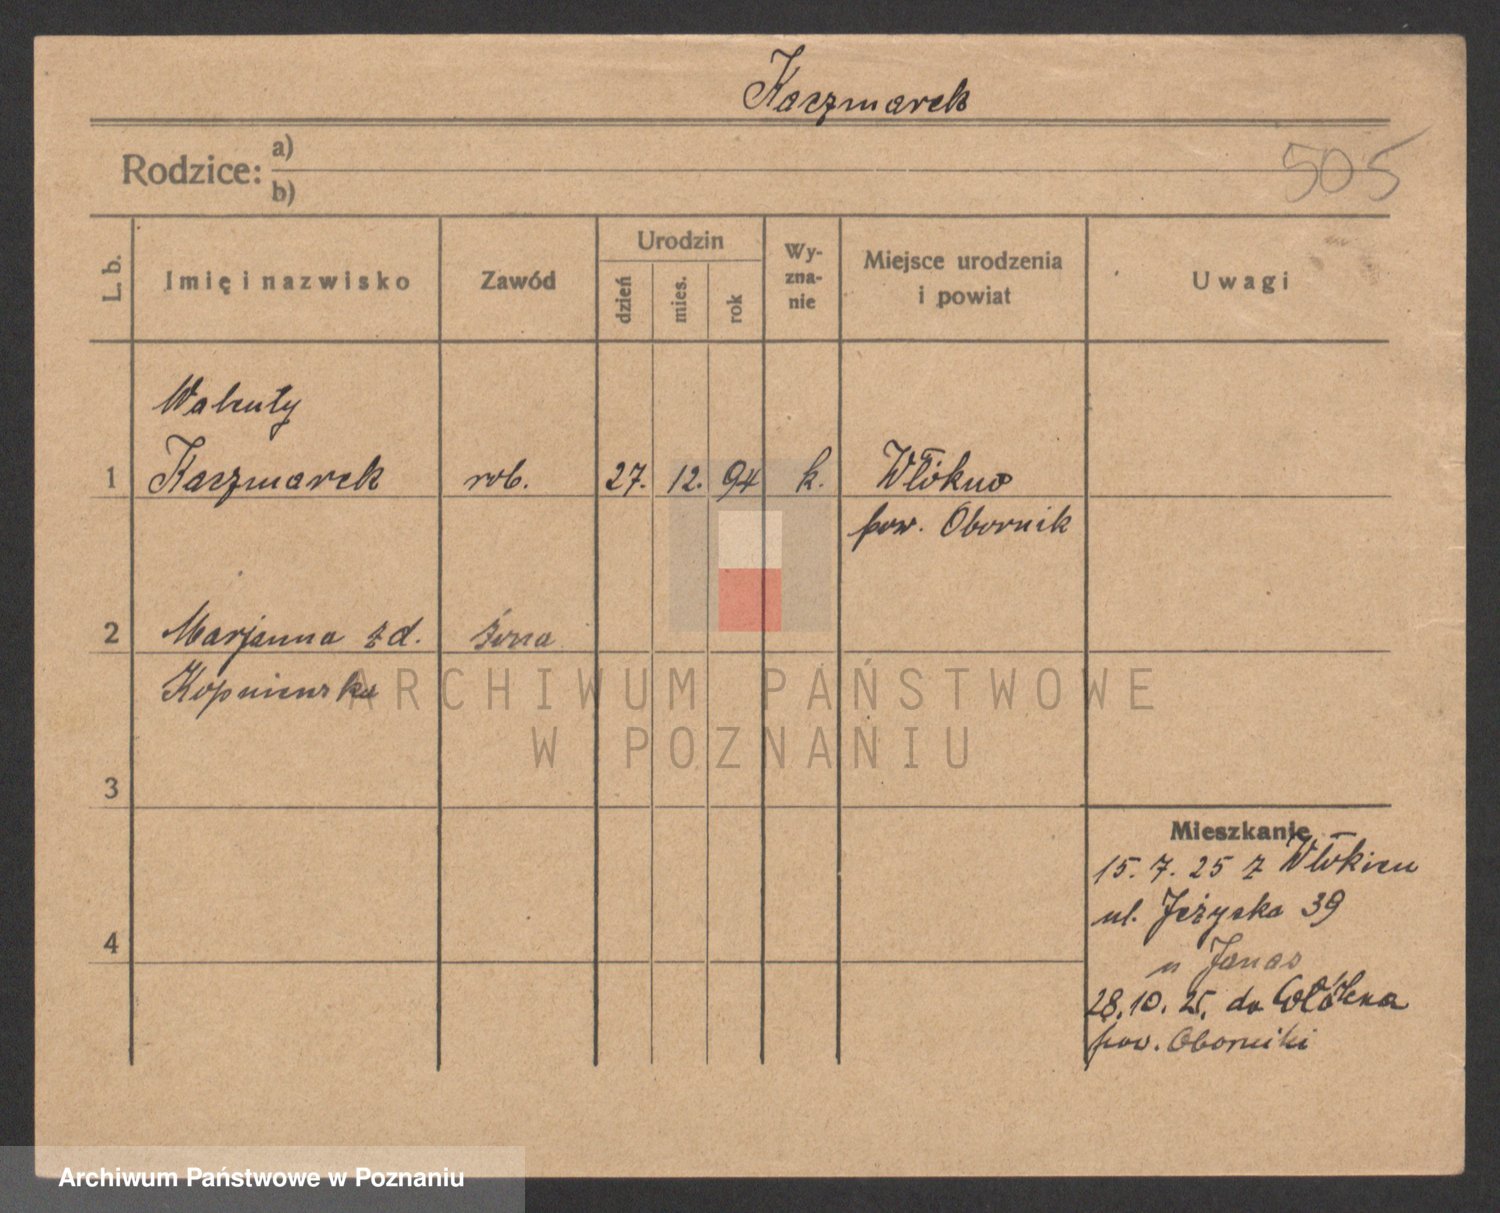 Kaczmarek
Rodzice: a)
b)
505
L. b.
Imię i nazwisko
Zawód
Urodzin
dzień
mies.
rok
Wy-
zna-
nie
Miejsce urodzenia
i powiat
Uwagi
Walenty
1 Kaczmarek rob. 27. 12. 94 k. Włókno
pow. Obornik
2 Marjanna z d. żona
3
4
Mieszkanie
15. 7. 25 z Włókien
ul. Jeżycka 39
u Janas
28. 10. 25. do Włókna
pow. Oborniki
ARCHIWUM PAŃSTWOWE
W POZNANIU
Archiwum Państwowe w Poznaniu